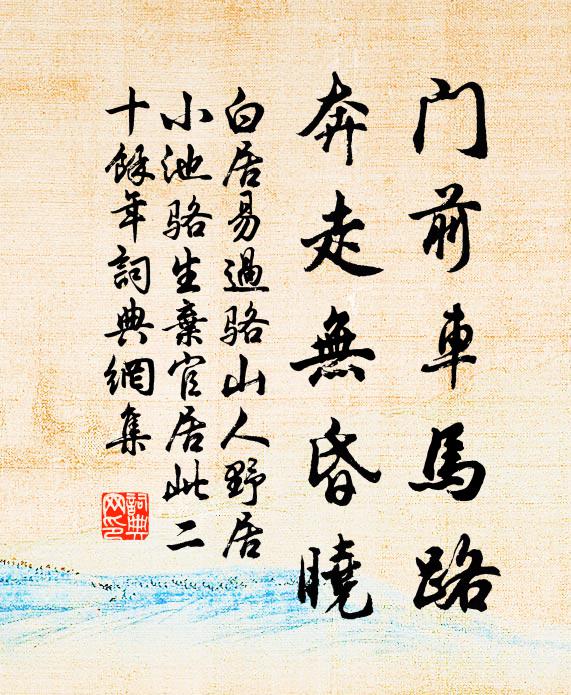 门前車馬路
奔走無昏曉
白居易過骆山人野居
小池骆生棄官居此二
十餘年詞典網集
詞典
网印